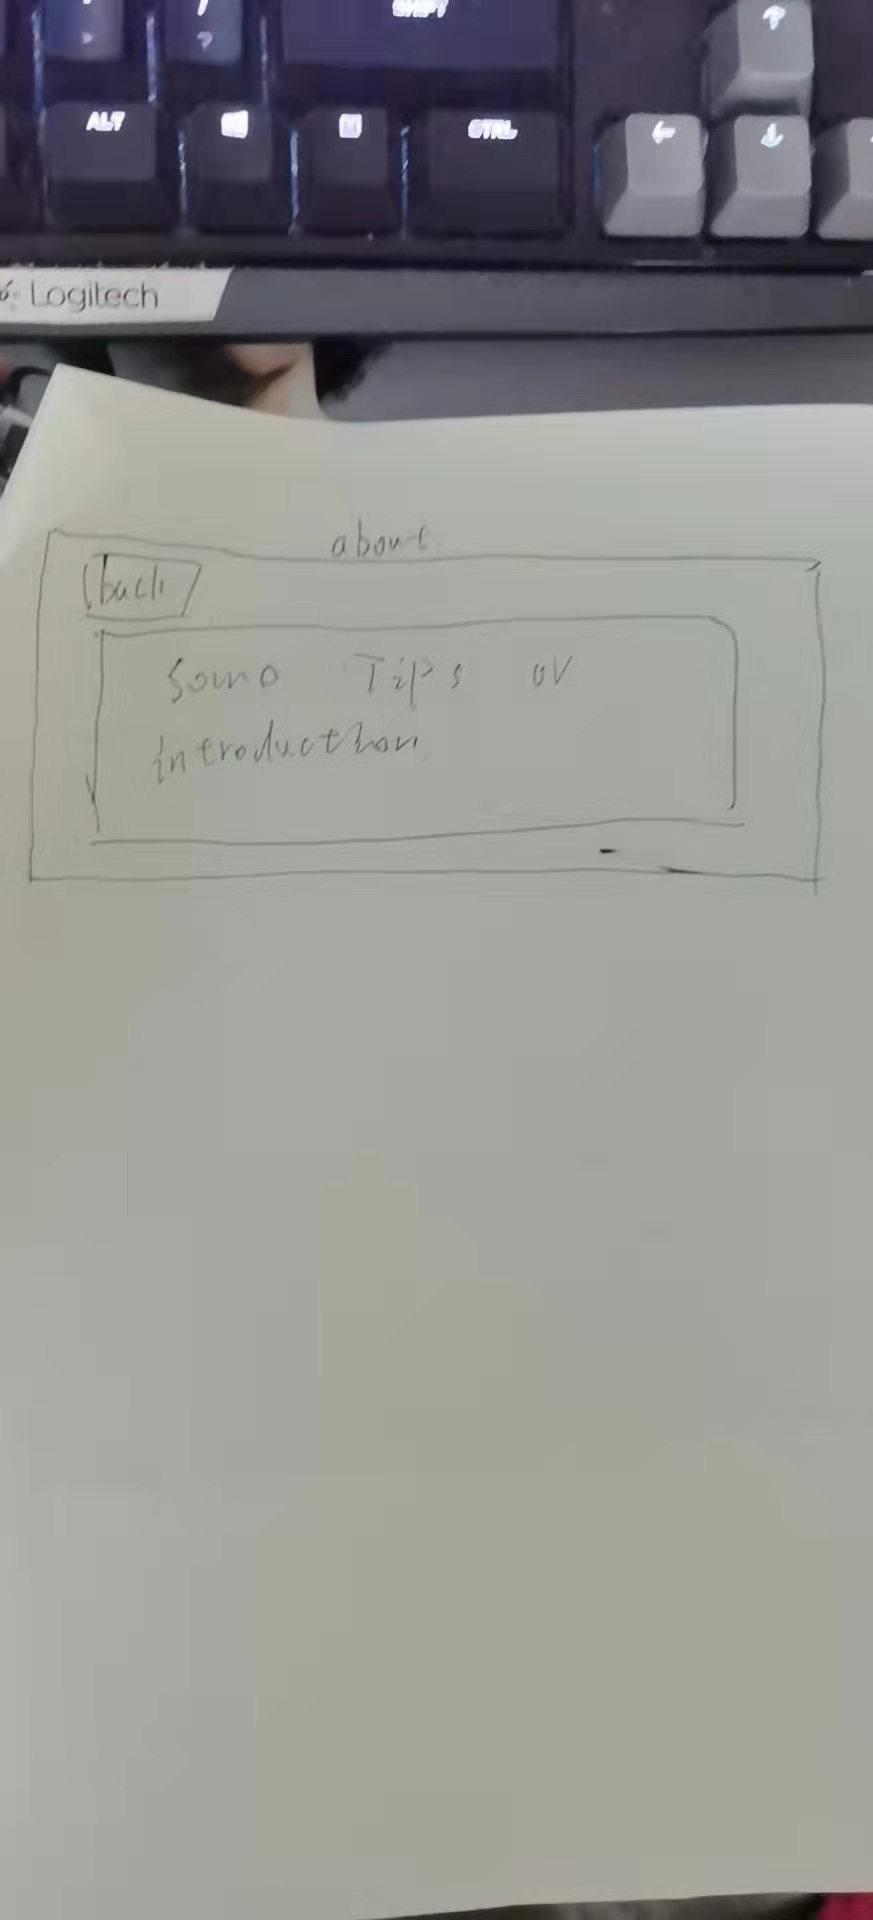 SHIFT
ALT
CTRL
Logitech
about
back
Some Tips or
introduction